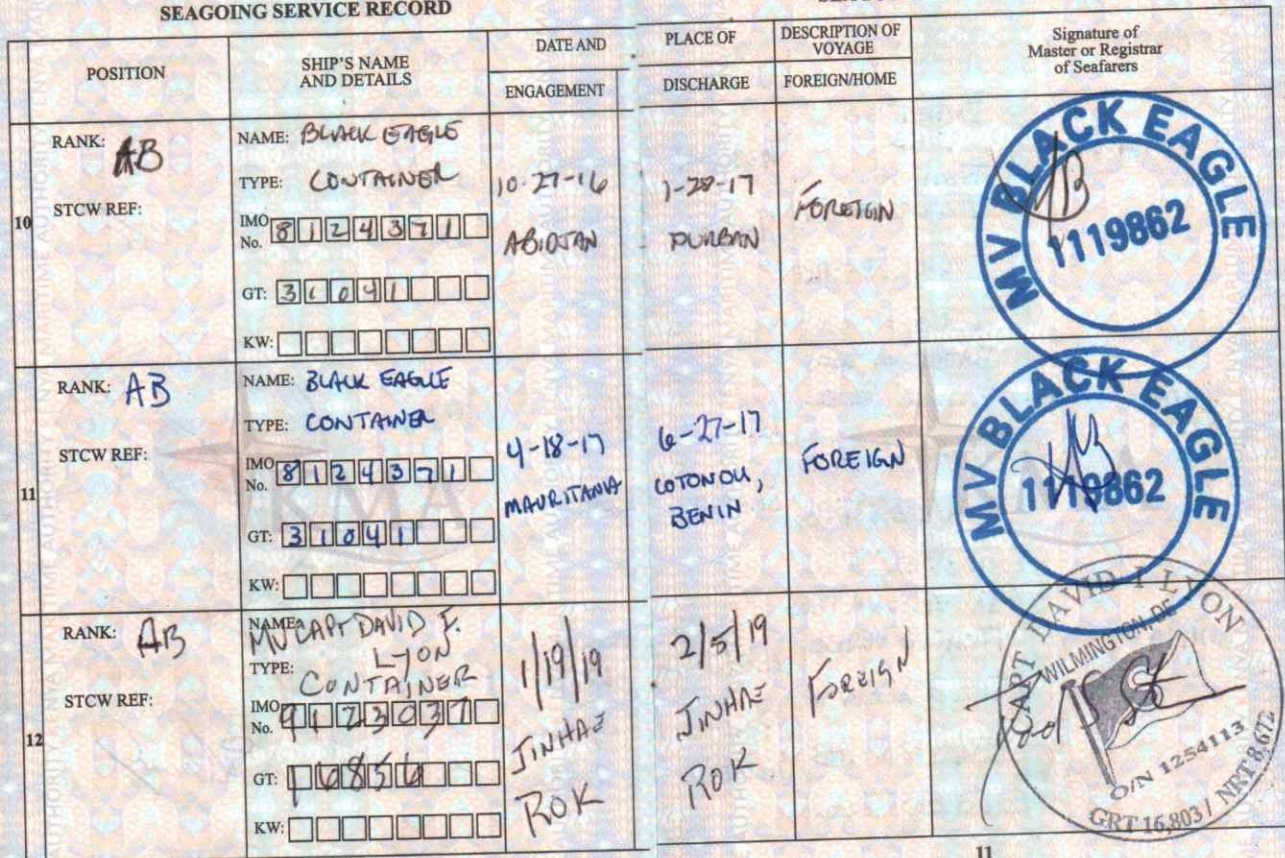 SEAGOING SERVICE RECORD
POSITION
SHIP'S NAME
AND DETAILS
DATE AND
ENGAGEMENT
PLACE OF
DISCHARGE
DESCRIPTION OF
VOYAGE
FOREIGN/HOME
Signature of
Master or Registrar
of Seafarers
10
RANK: AB
STCW REF:
NAME: BLACK EAGLE
TYPE: CONTAINER
IMO No. 8124371
GT: 31041
KW:
10-27-16
ABIDJAN
1-28-17
DURBAN
FOREIGN
MV BLACK EAGLE
1119862
11
RANK: AB
STCW REF:
NAME: BLACK EAGLE
TYPE: CONTAINER
IMO No. 8124371
GT: 31041
KW:
4-18-17
MAURITANIA
6-27-17
COTONOU,
BENIN
FOREIGN
MV BLACK EAGLE
1119862
KMA
12
RANK: AB
STCW REF:
NAME: MV CAPT DAVID I.
LYON
TYPE: CONTAINER
IMO No. 9123037
GT: 16856
KW:
1/19/19
JINHAE
ROK
2/5/19
JINHAE
ROK
FOREIGN
CAPT DAVID I LYON
WILMINGTON, DE
O/N 1254113
GRT 16,803 / NRT 8,672
11